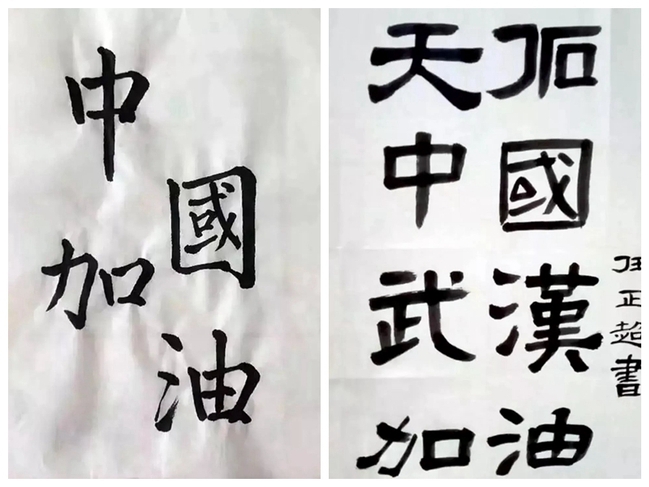 中國
加油
天佑
中國
武漢
加油
正超書